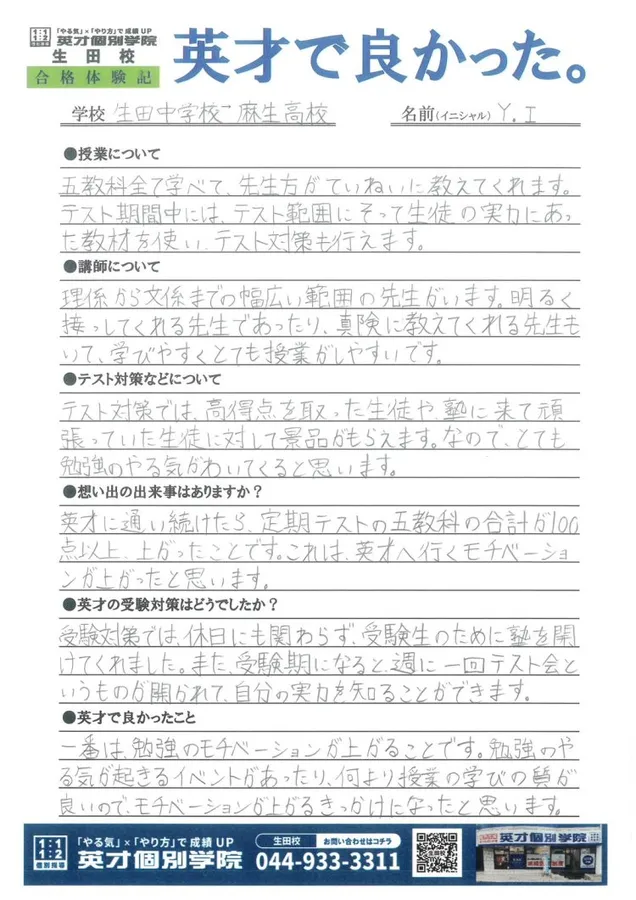 1:1
1:2
個別指導
「やる気」×「やり方」で成績UP
英才個別学院
生田校
合格体験記
英才で良かった。
学校 生田中学校→麻生高校 名前(イニシャル) Y.I
●授業について
五教科全て学べて、先生方がていねいに教えてくれます。
テスト期間中には、テスト範囲にそって生徒の実力にあっ
た教材を使い、テスト対策も行えます。
●講師について
理係から文係までの幅広い範囲の先生がいます。明るく
接っしてくれる先生であったり、真険に教えてくれる先生も
いて、学びやすくとても授業がしやすいです。
●テスト対策などについて
テスト対策では、高得点を取った生徒や、塾に来て頑
張っていた生徒に対して景品がもらえます。なので、とても
勉強のやる気がわいてくると思います。
●想い出の出来事はありますか？
英才に通い続けたら、定期テストの五教科の合計が100
点以上、上がったことです。これは、英才へ行くモチベーショ
ンが上がったと思います。
●英才の受験対策はどうでしたか？
受験対策では、休日にも関わらず、受験生のために塾を開
けてくれました。また、受験期になると、週に一回テスト会と
いうものが開かれて、自分の実力を知ることができます。
●英才で良かったこと
一番は、勉強のモチベーションが上がることです。勉強のや
る気が起きるイベントがあったり、何より授業の学びの質が
良いので、モチベーションが上がるきっかけになったと思います。
1:1
1:2
個別指導
「やる気」×「やり方」で成績UP
英才個別学院
生田校 お問い合わせはコチラ
044-933-3311
英才個別学院